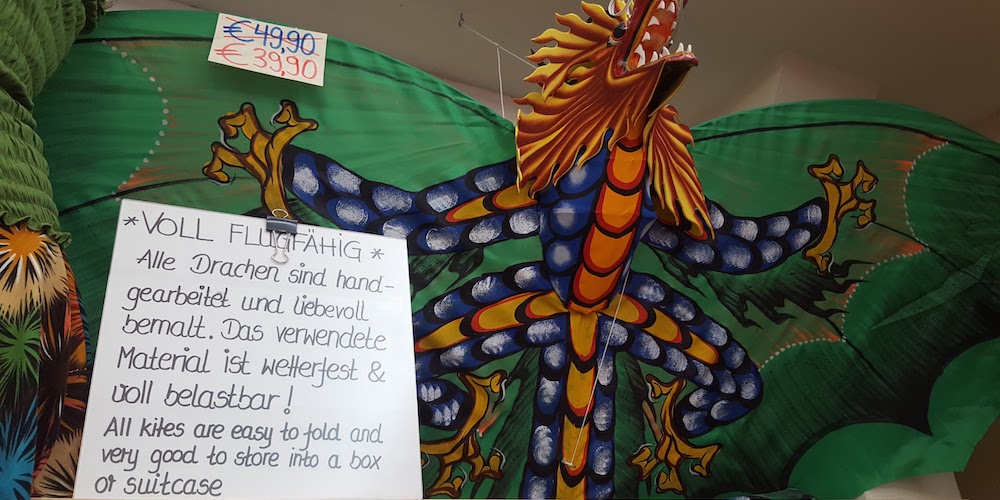 €49,90
€39,90
*VOLL FLUGFÄHIG*
Alle Drachen sind hand-
gearbeitet und liebevoll
bemalt. Das verwendete
Material ist wetterfest &
voll belastbar!
All kites are easy to fold and
very good to store into a box
or suitcase